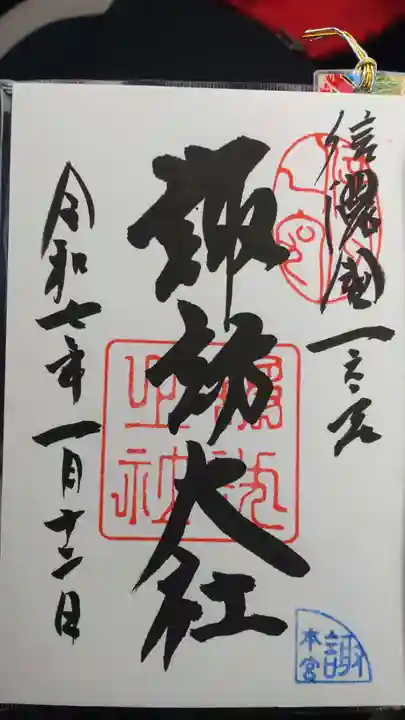 信濃國一之宮
諏訪大社
令和七年一月十二日
諏訪
本宮